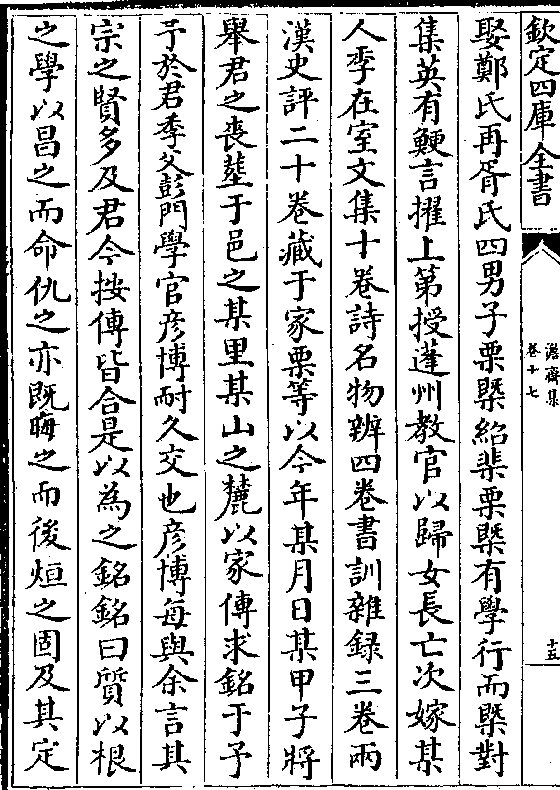 欽定四庫全書
澹齋集
卷十七
十五
娶鄭氏再胥氏四男子栗槩紹渠栗槩有學行而槩對
集英有鯁言擢上第授蓬州教官以歸女長亡次嫁某
人季在室文集十卷詩名物辨四卷書訓雜録三卷兩
漢史評二十卷藏于家栗等以今年某月日某甲子將
舉君之喪塟于邑之某里某山之麓以家傳求銘于予
予於君季父彭門學官彦博耐久交也彦博每與余言其
宗之賢多及君今按傳皆合是以為之銘銘曰質以根
之學以昌之而命仇之亦既晦之而後烜之固及其定